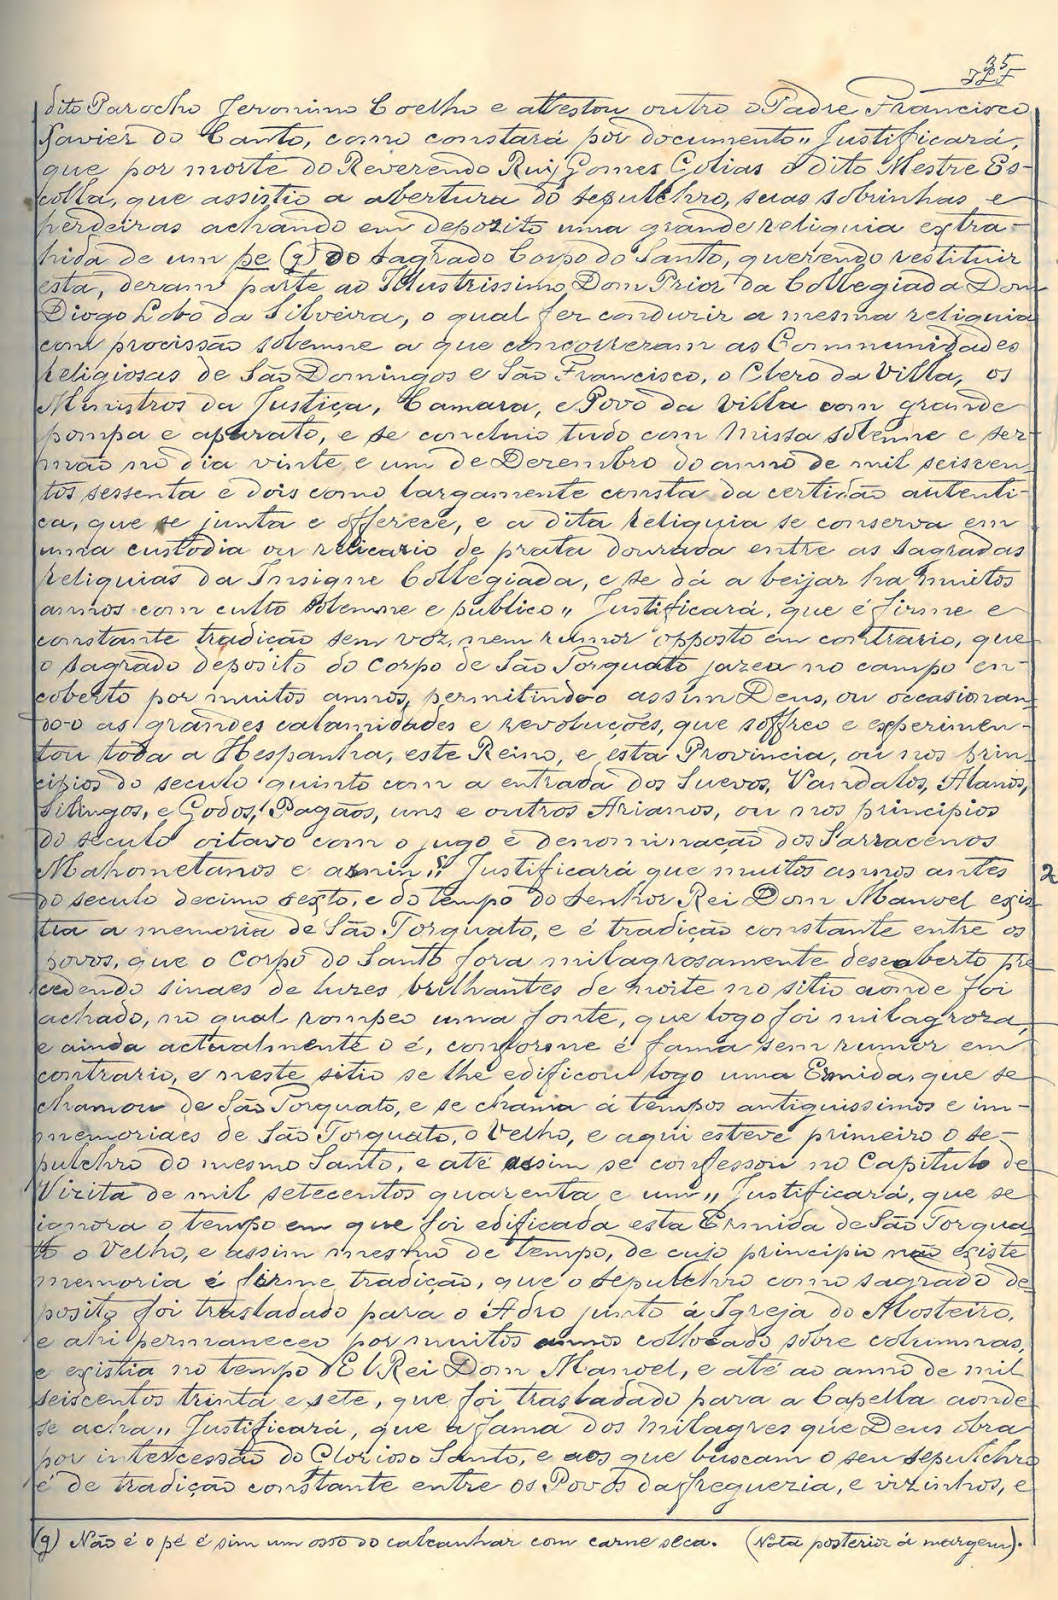 35
dito Parocho Jeronimo Coelho e attestou outro o Padre Francisco
Xavier do Canto, como constará por documento „ Justificará,
que por morte do Reverendo Ruy Gomes Golias o dito Mestre Es-
colla, que assistio a abertura do sepulchro, suas sobrinhas e
herdeiras achando em deposito uma grande reliquia extra-
hida de um pe (g) do sagrado Corpo do Santo, querendo restituir
esta, deram parte ao Illustrissimo Dom Prior da Collegiada Dom
Diogo Lobo da Silveira, o qual fez conduzir a mesma reliquia
com procissão solemne a que concorreram as Communidades
Religiosas de São Domingos e São Francisco, o Clero da Villa, os
Ministros da Justiça, Camara, e Povo da Villa com grande
pompa e aparato, e se concluio tudo com Missa solemne e ser-
mão no dia vinte e um de Dezembro do anno de mil seiscen-
tos sessenta e dois como largamente consta da certidão autenti-
ca, que se junta e offerece, e a dita reliquia se conserva em
uma custodia ou relicario de prata dourada entre as sagradas
reliquias da Insigne Collegiada, e se dá a beijar ha muitos
annos com culto solemne e publico „ Justificará, que é firme e
constante tradição sem voz, nem rumor opposto em contrario, que
o sagrado deposito do Corpo de São Torquato jazeu no campo en-
coberto por muitos annos, permitindo-o assim Deus, ou occasionan-
do-o as grandes calamidades e revoluções, que soffreo e experimen-
tou toda a Hespanha, este Reino, e esta Provincia, ou nos prin-
cipios do seculo quinto com a entrada dos Suevos, Vandalos, Alanos,
Silingos, e Godos, Pagãos, uns e outros Arianos, ou nos principios
do seculo oitavo com o jugo e denominação dos Sarracenos
Mahometanos e assim „ Justificará que muitos annos antes
2
do seculo decimo sexto, e do tempo do Senhor Rei Dom Manoel exis
tia a memoria de São Torquato, e é tradição constante entre os
povos, que o Corpo do Santo fora milagrosamente descoberto pre
cedendo sinaes de luzes brilhantes de noite no sitio aonde foi
achado, no qual rompeo uma fonte, que logo foi milagroza,
e ainda actualmente o é, conforme é fama sem rumor em
contrario, e neste sitio se lhe edificou logo uma Ermida, que se
chamou de São Torquato, e se chama á tempos antiquissimos e im-
memoriaes de São Torquato, o Velho, e aqui esteve primeiro o se-
pulchro do mesmo Santo, e até assim se confessou no Capitulo de
Vizita de mil setecentos quarenta e um „ Justificará, que se
ignora o tempo em que foi edificada esta Ermida de São Torqua
to o Velho, e assim mesmo de tempo, de cujo principio não existe
memoria é firme tradição, que o sepulchro como sagrado de
posito foi trasladado para o Adro junto á Igreja do Mosteiro,
e ahi permaneceo por muitos annos collocado sobre columnas,
e existia no tempo d'El Rei Dom Manoel, e até ao anno de mil
seiscentos trinta e sete, que foi trasladado para a Capella aonde
se acha „ Justificará, que a fama dos Milagres que Deus obra
por intercessão do Glorioso Santo, e aos que buscam o seu sepulchro
é de tradição constante entre os Povos da freguezia, e vizinhos, e
(g) Não é o pé é sim um osso do calcanhar com carne seca. (Nota posterior á margem).